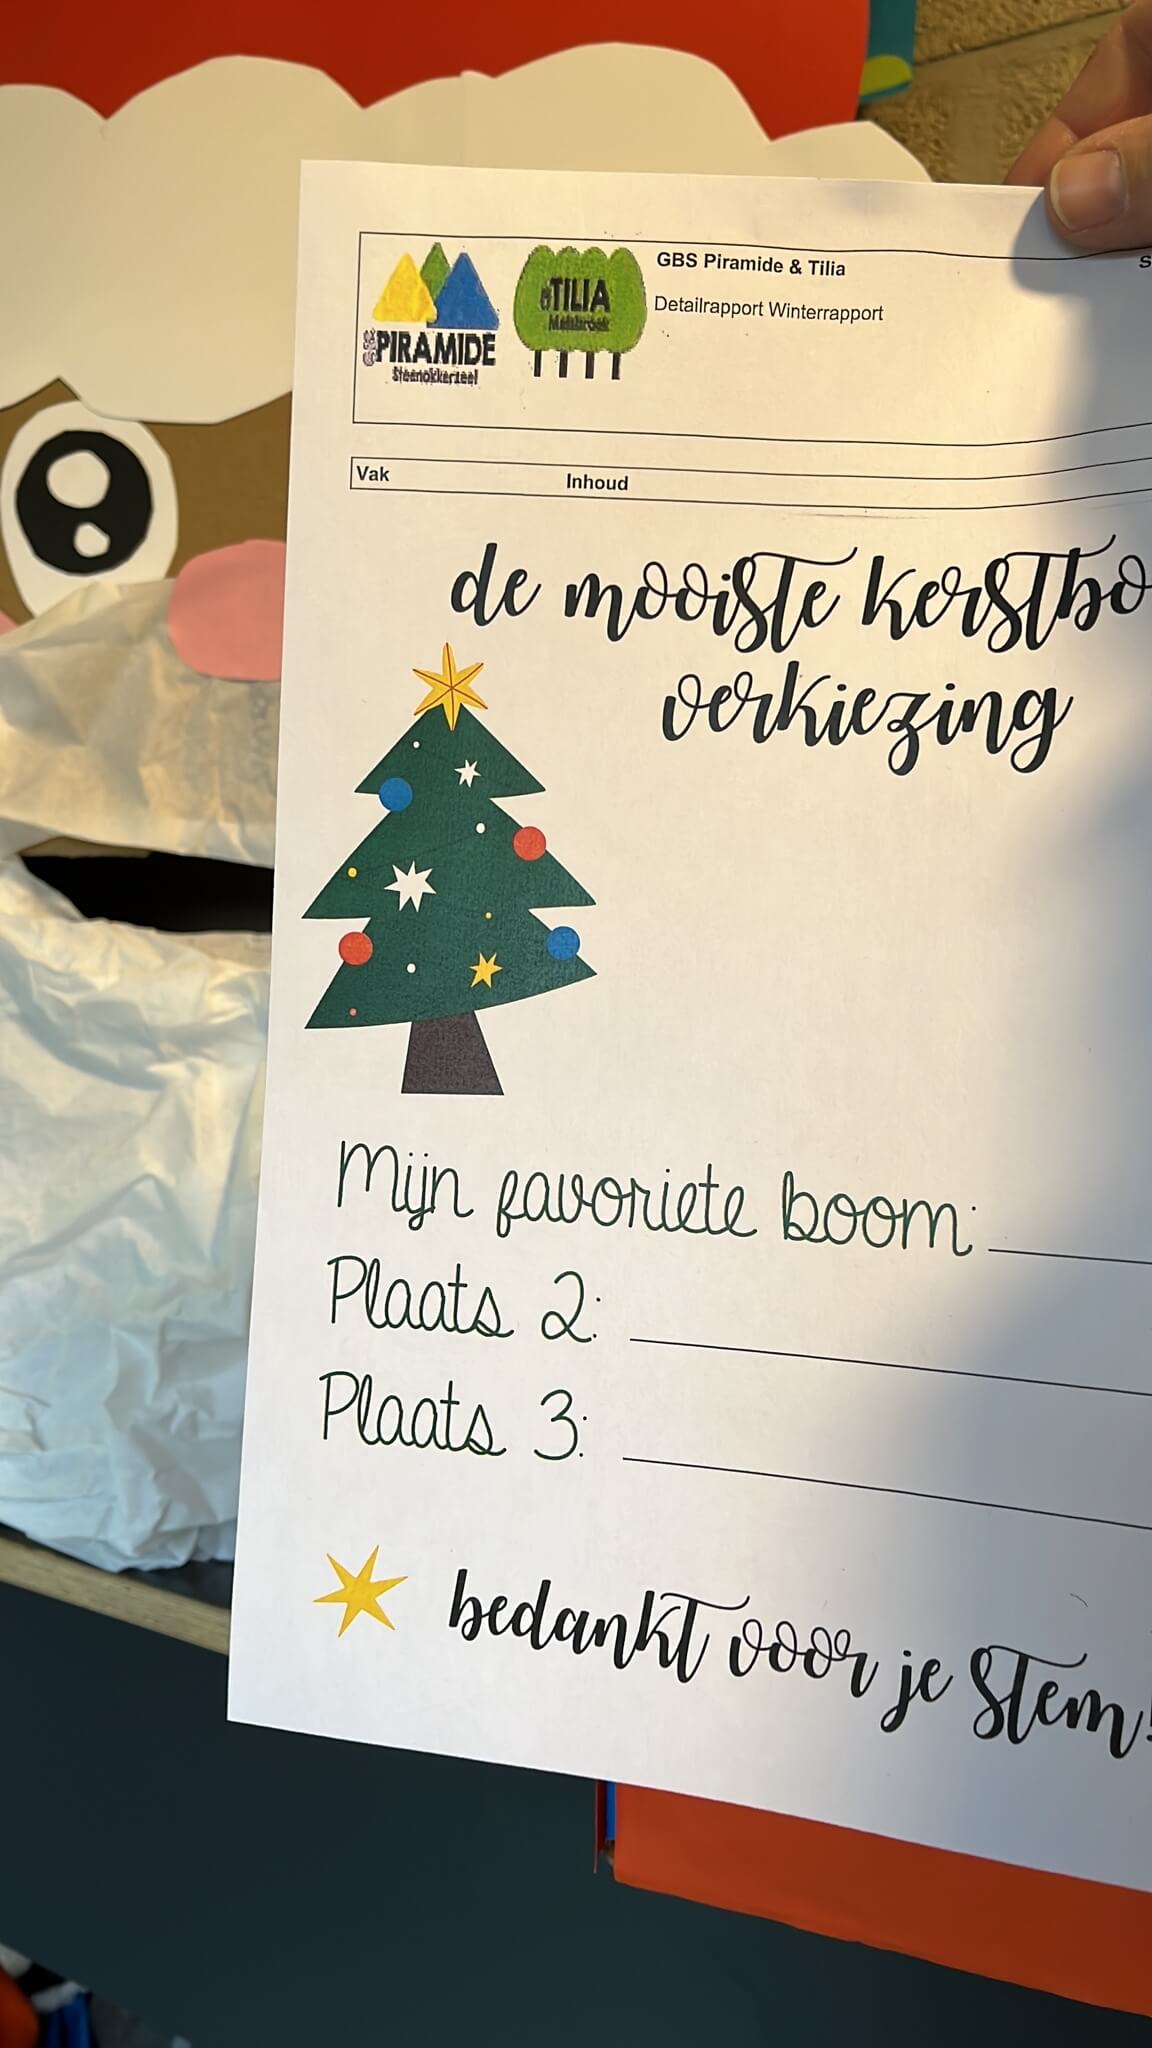 GBS PIRAMIDE
Steenokkerzeel
de TILIA
Melsbroek
GBS Piramide & Tilia
Detailrapport Winterrapport
Vak Inhoud
de mooiste kerstbo
verkiezing
Mijn favoriete boom:
Plaats 2:
Plaats 3:
bedankt voor je stem!